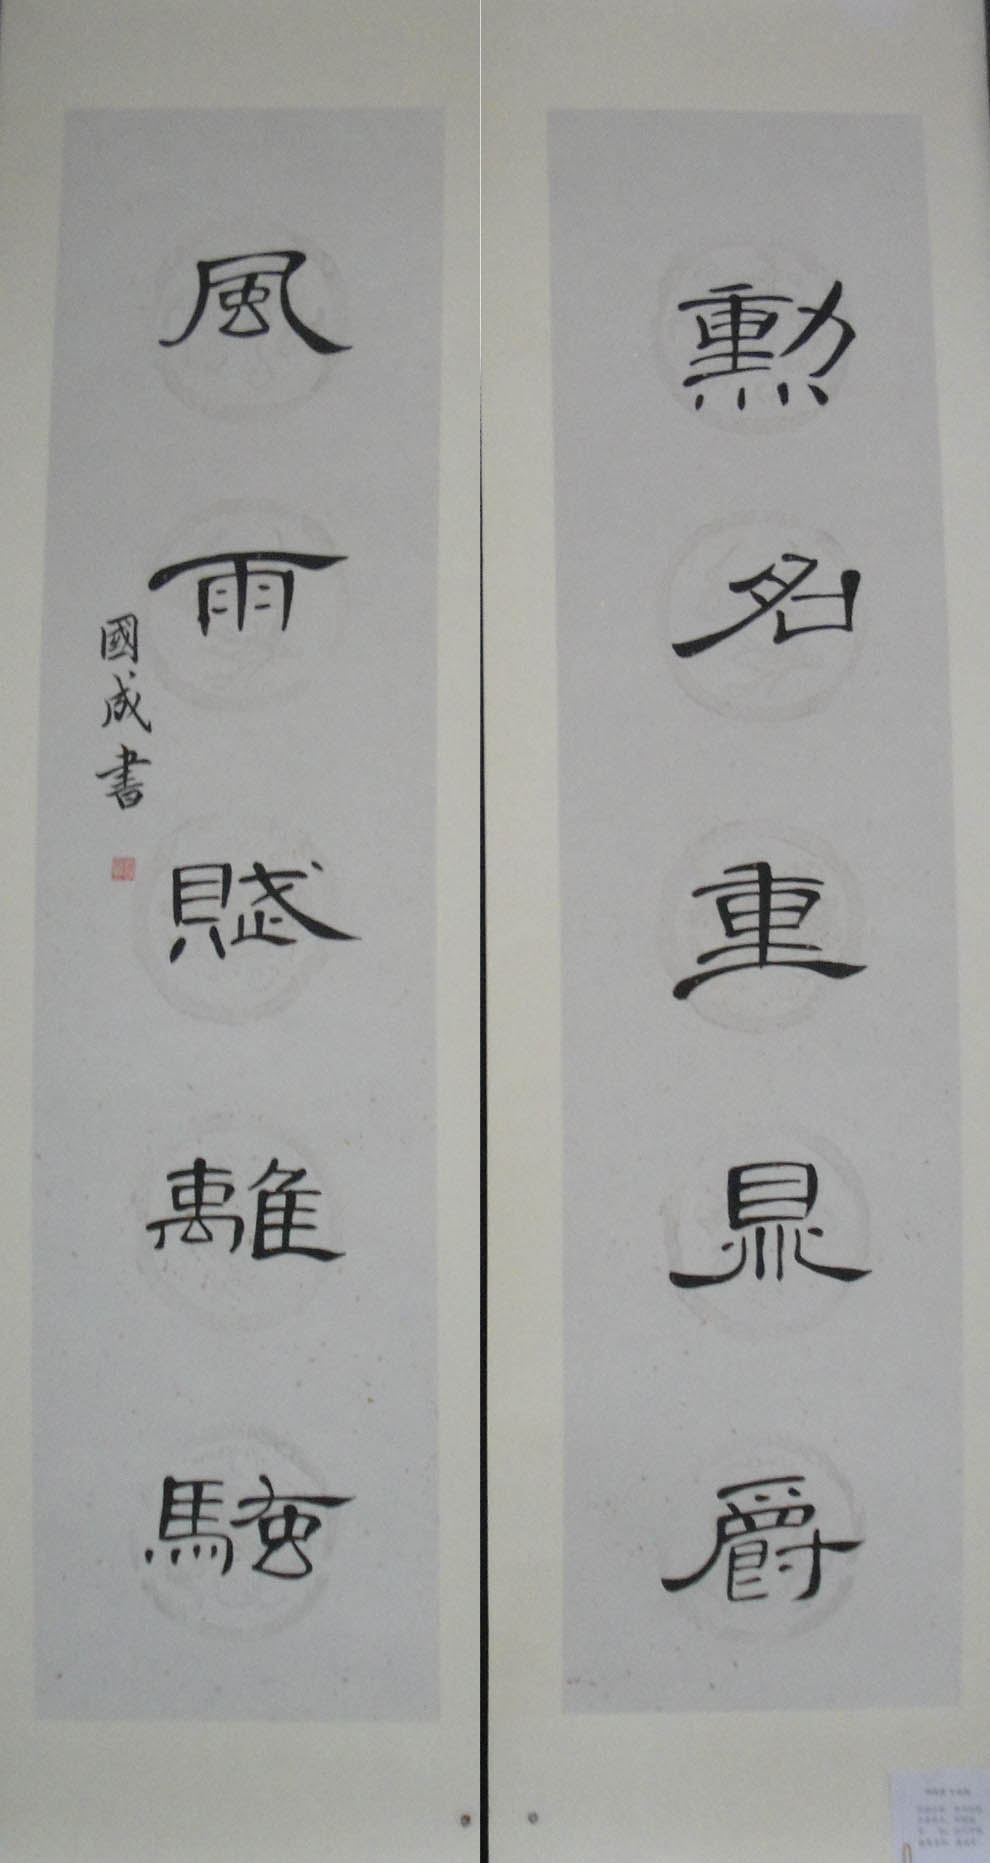 勳名重鼎爵
風雨賦離騷
國成書